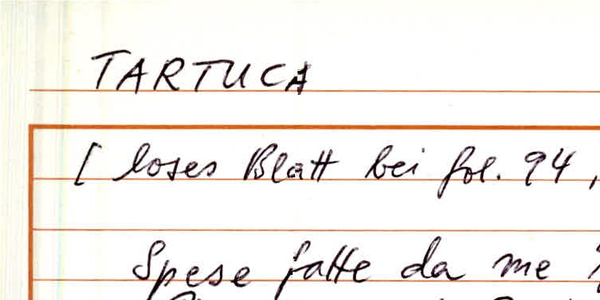 TARTUCA
[ loses Blatt bei fol. 94,
Spese fatte da me